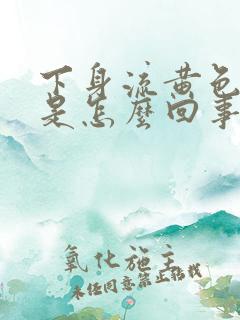 下身流黄色
是怎么回事
氧化施主
未经同意禁止转载